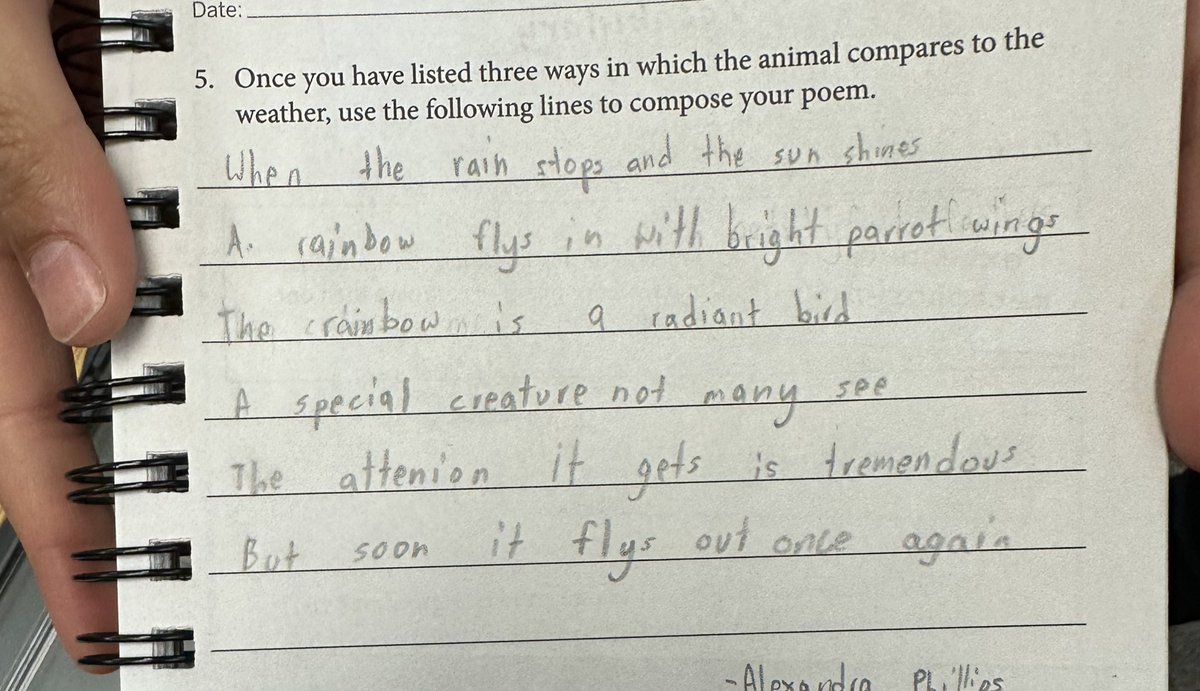 Date:
5. Once you have listed three ways in which the animal compares to the
weather, use the following lines to compose your poem.
When the rain stops and the sun shines
A rainbow flys in with bright parrot wings
The rainbow is a radiant bird
A special creature not many see
The attenion it gets is tremendous
But soon it flys out once again
-Alexandra Phillips